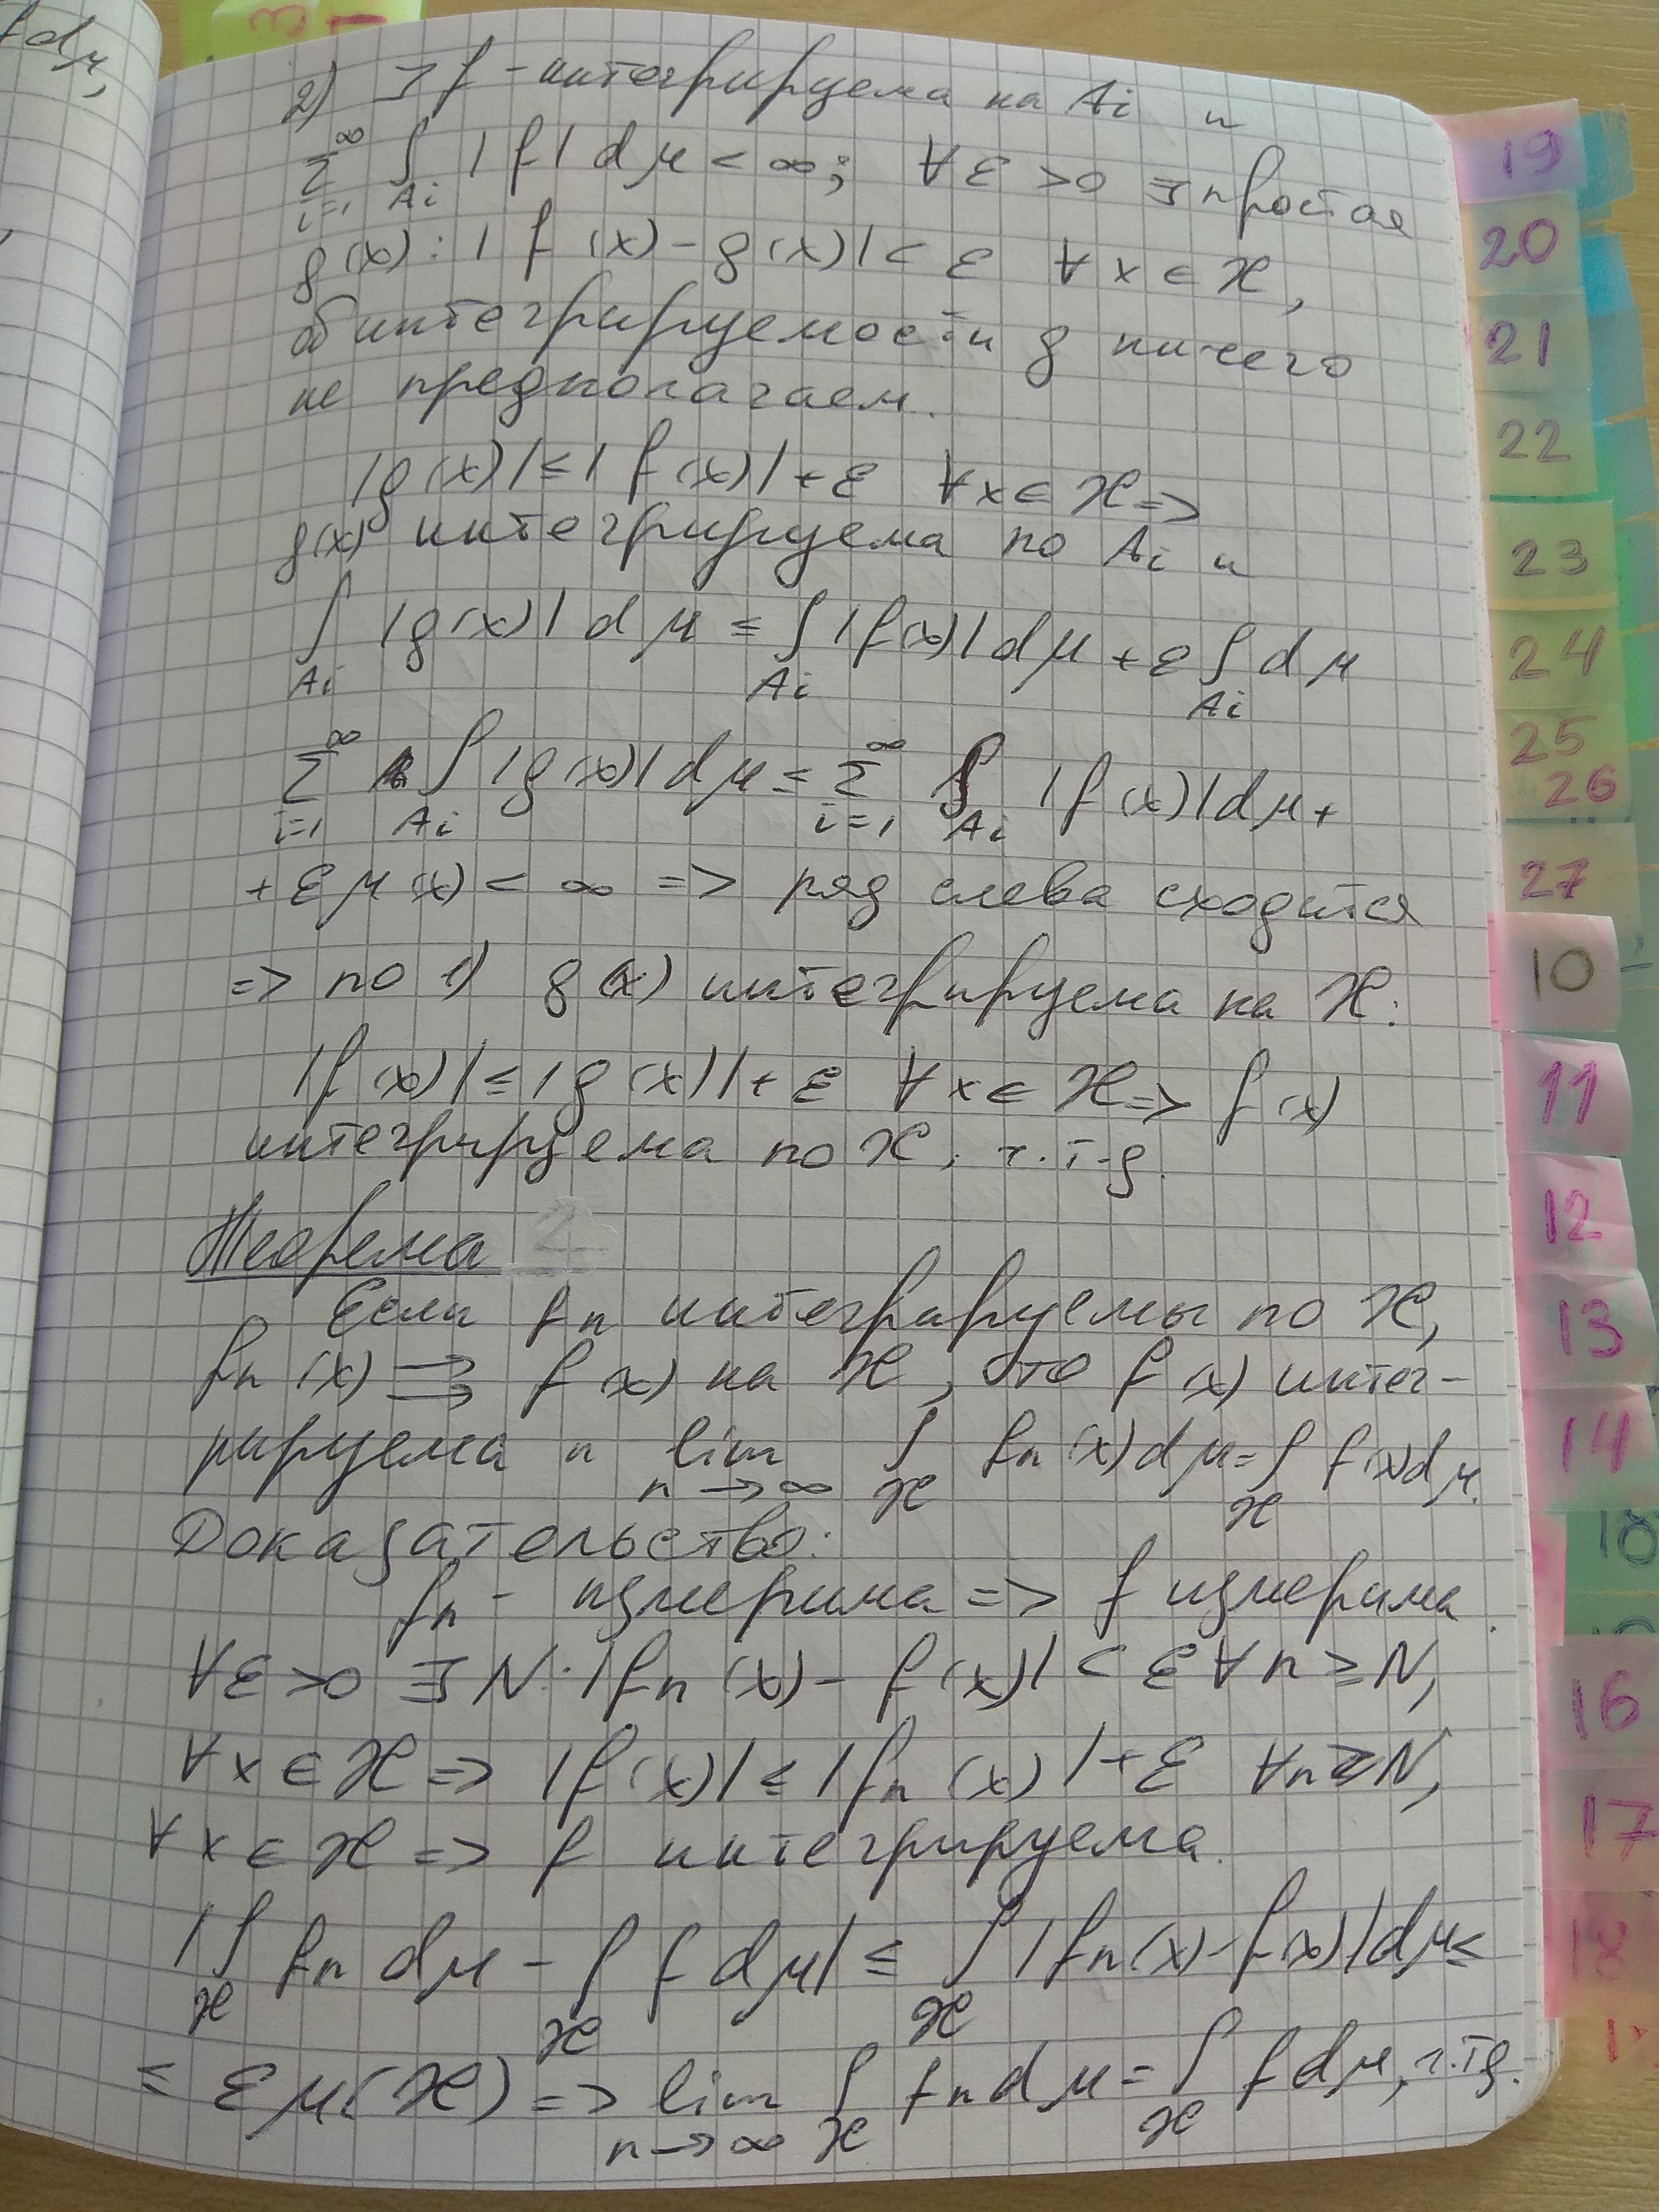 f dμ,
2) ∃ f - интегрируема на Ai и
∞∑i=1 ∫Ai |f| dμ < ∞; ∀ε > 0 ∃ простая
g(x): |f(x) - g(x)| < ε ∀x ∈ X,
об интегрируемости g ничего
не предполагаем.
|g(x)| ≤ |f(x)| + ε ∀x ∈ X =>
g(x) интегрируема по Ai и
∫Ai |g(x)| dμ ≤ ∫Ai |f(x)| dμ + ε ∫Ai dμ
∞∑i=1 ∫Ai |g(x)| dμ ≤ ∞∑i=1 ∫Ai |f(x)| dμ +
+ ε μ(x) < ∞ => ряд слева сходится
=> по 1) g(x) интегрируема на X:
|f(x)| ≤ |g(x)| + ε ∀x ∈ X => f(x)
интегрируема по X, ч.т.д.
Теорема 2
Если fn интегрируемы по X,
fn(x) ⇉ f(x) на X, то f(x) интег-
рируема и lim n→∞ ∫X fn(x) dμ = ∫X f(x) dμ.
Доказательство:
fn - измерима => f измерима.
∀ε > 0 ∃ N: |fn(x) - f(x)| < ε ∀n ≥ N,
∀x ∈ X => |f(x)| ≤ |fn(x)| + ε ∀n ≥ N,
∀x ∈ X => f интегрируема.
|∫X fn dμ - ∫X f dμ| ≤ ∫X |fn(x) - f(x)| dμ ≤
≤ ε μ(X) => lim n→∞ ∫X fn dμ = ∫X f dμ, ч.т.д.
19
20
21
22
23
24
25
26
27
10
11
12
13
14
18
16
17
18